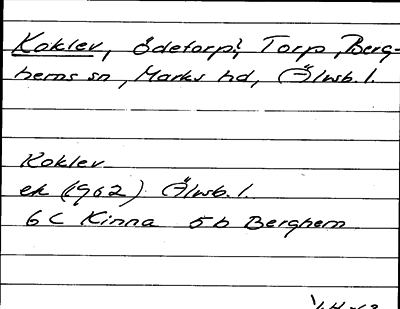 Koklev, Ödetorp?, Torp, Berg-
hems sn, Marks hd, Älvsb. l.
Koklev
ek (1962) Älvsb. l.
6 C Kinna 5 b Berghem